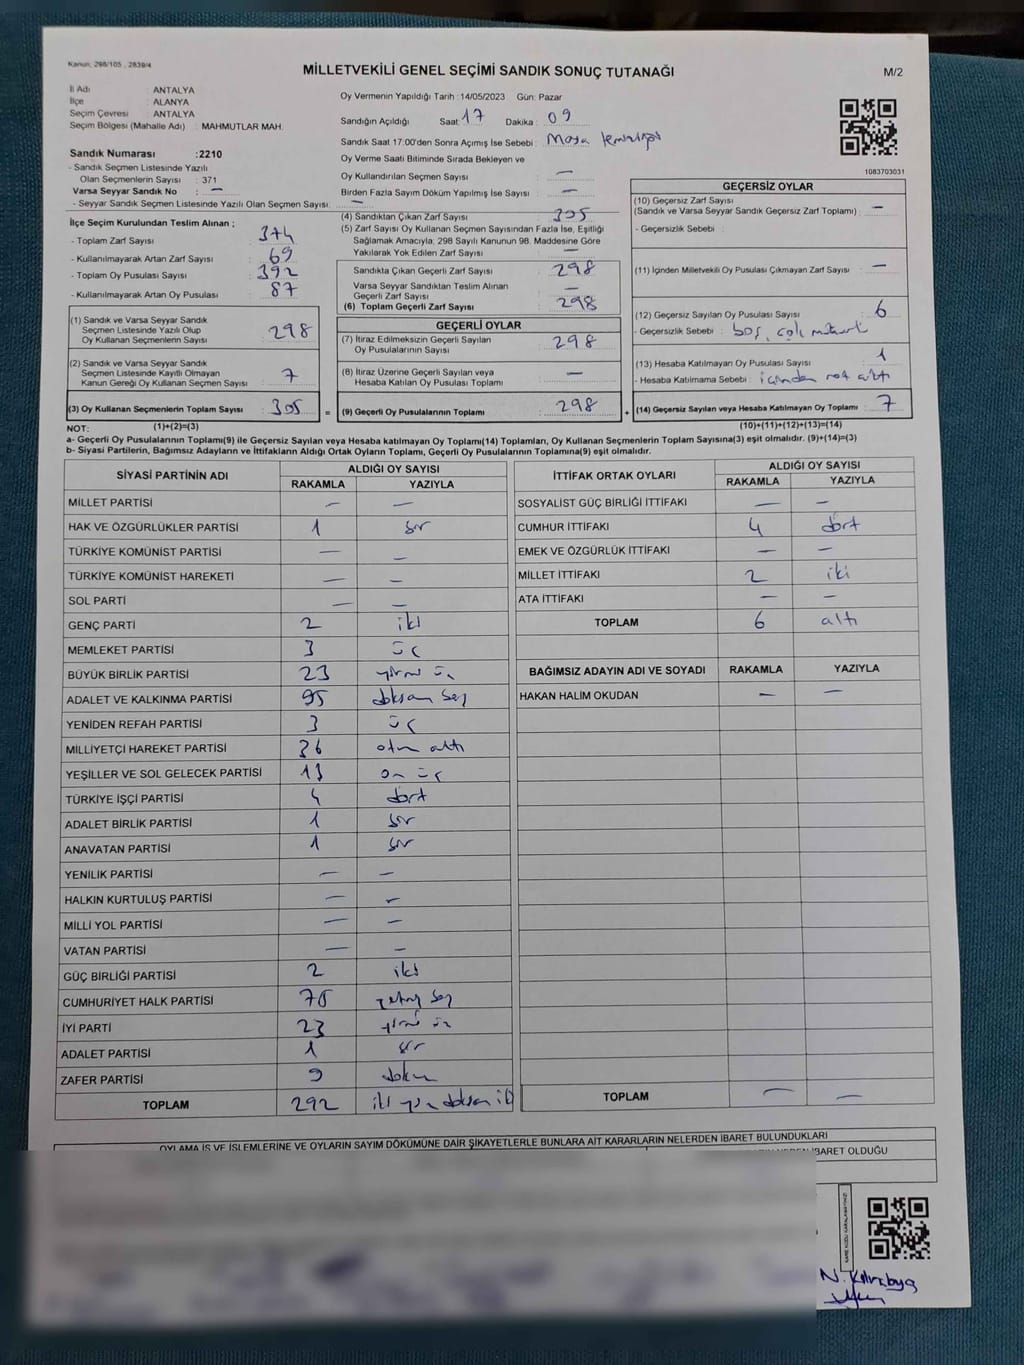 Kanun; 298/105 , 2839/4
MİLLETVEKİLİ GENEL SEÇİMİ SANDIK SONUÇ TUTANAĞI
M/2
İl Adı : ANTALYA
İlçe : ALANYA
Seçim Çevresi : ANTALYA
Seçim Bölgesi (Mahalle Adı) : MAHMUTLAR MAH.
Oy Vermenin Yapıldığı Tarih :14/05/2023 Gün: Pazar
Sandığın Açıldığı Saat: 17 Dakika : 09
Sandık Saat 17:00'den Sonra Açımış İse Sebebi : Masa
Oy Verme Saati Bitiminde Sırada Bekleyen ve
Oy Kullandırılan Seçmen Sayısı : —
Birden Fazla Sayım Döküm Yapılmış İse Sayısı : —
1083703031
Sandık Numarası :2210
- Sandık Seçmen Listesinde Yazılı
Olan Seçmenlerin Sayısı : 371
Varsa Seyyar Sandık No : —
- Seyyar Sandık Seçmen Listesinde Yazılı Olan Seçmen Sayısı: —
İlçe Seçim Kurulundan Teslim Alınan ;
- Toplam Zarf Sayısı : 374
- Kullanılmayarak Artan Zarf Sayısı : 69
- Toplam Oy Pusulası Sayısı : 392
- Kullanılmayarak Artan Oy Pusulası : 87
(1) Sandık ve Varsa Seyyar Sandık
Seçmen Listesinde Yazılı Olup
Oy Kullanan Seçmenlerin Sayısı : 298
(2) Sandık ve Varsa Seyyar Sandık
Seçmen Listesinde Kayıtlı Olmayan
Kanun Gereği Oy Kullanan Seçmen Sayısı : 7
(3) Oy Kullanan Seçmenlerin Toplam Sayısı : 305 =
(4) Sandıktan Çıkan Zarf Sayısı : 305
(5) Zarf Sayısı Oy Kullanan Seçmen Sayısından Fazla İse, Eşitliği
Sağlamak Amacıyla, 298 Sayılı Kanunun 98. Maddesine Göre
Yakılarak Yok Edilen Zarf Sayısı : —
Sandıkta Çıkan Geçerli Zarf Sayısı : 298
Varsa Seyyar Sandıktan Teslim Alınan
Geçerli Zarf Sayısı : —
(6) Toplam Geçerli Zarf Sayısı : 298
GEÇERLİ OYLAR
(7) İtiraz Edilmeksizin Geçerli Sayılan
Oy Pusulalarının Sayısı : 298
(8) İtiraz Üzerine Geçerli Sayılan veya
Hesaba Katılan Oy Pusulası Toplamı : —
(9) Geçerli Oy Pusulalarının Toplamı : 298 +
GEÇERSİZ OYLAR
(10) Geçersiz Zarf Sayısı
(Sandık ve Varsa Seyyar Sandık Geçersiz Zarf Toplamı) : —
- Geçersizlik Sebebi :
(11) İçinden Milletvekili Oy Pusulası Çıkmayan Zarf Sayısı : —
(12) Geçersiz Sayılan Oy Pusulası Sayısı : 6
- Geçersizlik Sebebi : boş, çok mühürlü
(13) Hesaba Katılmayan Oy Pusulası Sayısı : 1
- Hesaba Katılmama Sebebi : içinden not çıktı
(14) Geçersiz Sayılan veya Hesaba Katılmayan Oy Toplamı : 7
NOT: (1)+(2)=(3) (10)+(11)+(12)+(13)=(14)
a- Geçerli Oy Pusulalarının Toplamı(9) ile Geçersiz Sayılan veya Hesaba katılmayan Oy Toplamı(14) Toplamları, Oy Kullanan Seçmenlerin Toplam Sayısına(3) eşit olmalıdır. (9)+(14)=(3)
b- Siyasi Partilerin, Bağımsız Adayların ve İttifakların Aldığı Ortak Oyların Toplamı, Geçerli Oy Pusulalarının Toplamına(9) eşit olmalıdır.
SİYASİ PARTİNİN ADI ALDIĞI OY SAYISI
RAKAMLA YAZIYLA
MİLLET PARTİSİ — —
HAK VE ÖZGÜRLÜKLER PARTİSİ 1 bir
TÜRKİYE KOMÜNİST PARTİSİ — —
TÜRKİYE KOMÜNİST HAREKETİ — —
SOL PARTİ — —
GENÇ PARTİ 2 iki
MEMLEKET PARTİSİ 3 üç
BÜYÜK BİRLİK PARTİSİ 23 yirmi üç
ADALET VE KALKINMA PARTİSİ 95 doksan beş
YENİDEN REFAH PARTİSİ 3 üç
MİLLİYETÇİ HAREKET PARTİSİ 36 otuz altı
YEŞİLLER VE SOL GELECEK PARTİSİ 13 on üç
TÜRKİYE İŞÇİ PARTİSİ 4 dört
ADALET BİRLİK PARTİSİ 1 bir
ANAVATAN PARTİSİ 1 bir
YENİLİK PARTİSİ — —
HALKIN KURTULUŞ PARTİSİ — —
MİLLİ YOL PARTİSİ — —
VATAN PARTİSİ — —
GÜÇ BİRLİĞİ PARTİSİ 2 iki
CUMHURİYET HALK PARTİSİ 75 yetmiş beş
İYİ PARTİ 23 yirmi üç
ADALET PARTİSİ 1 bir
ZAFER PARTİSİ 9 dokuz
TOPLAM 292 iki yüz doksan iki
İTTİFAK ORTAK OYLARI ALDIĞI OY SAYISI
RAKAMLA YAZIYLA
SOSYALİST GÜÇ BİRLİĞİ İTTİFAKI — —
CUMHUR İTTİFAKI 4 dört
EMEK VE ÖZGÜRLÜK İTTİFAKI — —
MİLLET İTTİFAKI 2 iki
ATA İTTİFAKI — —
TOPLAM 6 altı
BAĞIMSIZ ADAYIN ADI VE SOYADI RAKAMLA YAZIYLA
HAKAN HALİM OKUDAN — —
TOPLAM — —
OYLAMA İŞ VE İŞLEMLERİNE VE OYLARIN SAYIM DÖKÜMÜNE DAİR ŞİKAYETLERLE BUNLARA AİT KARARLARIN NELERDEN İBARET BULUNDUKLARI
İBARET OLDUĞU